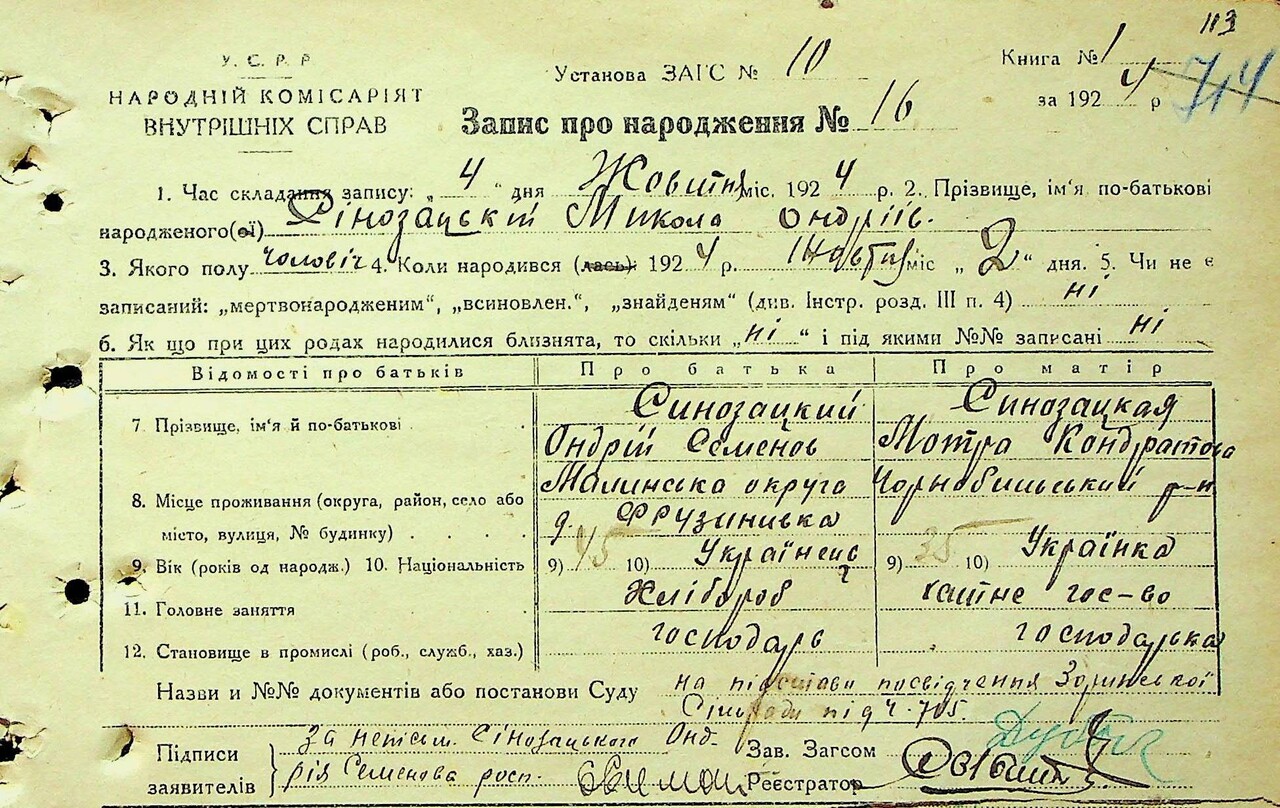 113
У. С. Р. Р
НАРОДНІЙ КОМІСАРІЯТ
ВНУТРІШНІХ СПРАВ
Установа ЗАГС № 10
Книга № 1
за 1924 р
714
Запис про народження № 16
1. Час складання запису: „ 4 “ дня Жовтня міс. 1924 р. 2. Прізвище, ім'я по-батькові
народженого(ої) Сінозацькій Микола Ондріїв.
3. Якого полу чоловіч 4. Коли народився (лась) 1924 р. Жовтня міс „ 2 “ дня. 5. Чи не є
записаний: „мертвонародженим“, „всиновлен.“, „знайденям“ (див. Інстр. розд. III п. 4) ні
6. Як що при цих родах народилися близнята, то скільки „ ні “ і під якими №№ записані ні
Відомості про батьків Про батька Про матір
7 Прізвище, ім'я й по-батькові Синозацкий Синозацкая
Ондрій Семенов Мотра Кондратова
8. Місце проживання (округа, район, село або Малинська округа Чорнобильський р-н
місто, вулиця, № будинку) д. Фрузинивка
9. Вік (років од народж.) 10. Національність 9) 45 10) Українець 9) 35 10) Українка
11. Головне заняття Хлібороб хатне гос-во
12. Становище в промислі (роб., служб., хаз.) господарь господарька
Назви и №№ документів або постанови Суду на підстави посвідчення Зоринської
Сільради під ч. 705.
Підписи за неписьм. Сінозацького Онд- Зав. Загсом
заявителів рія Семенова росп. Реєстратор